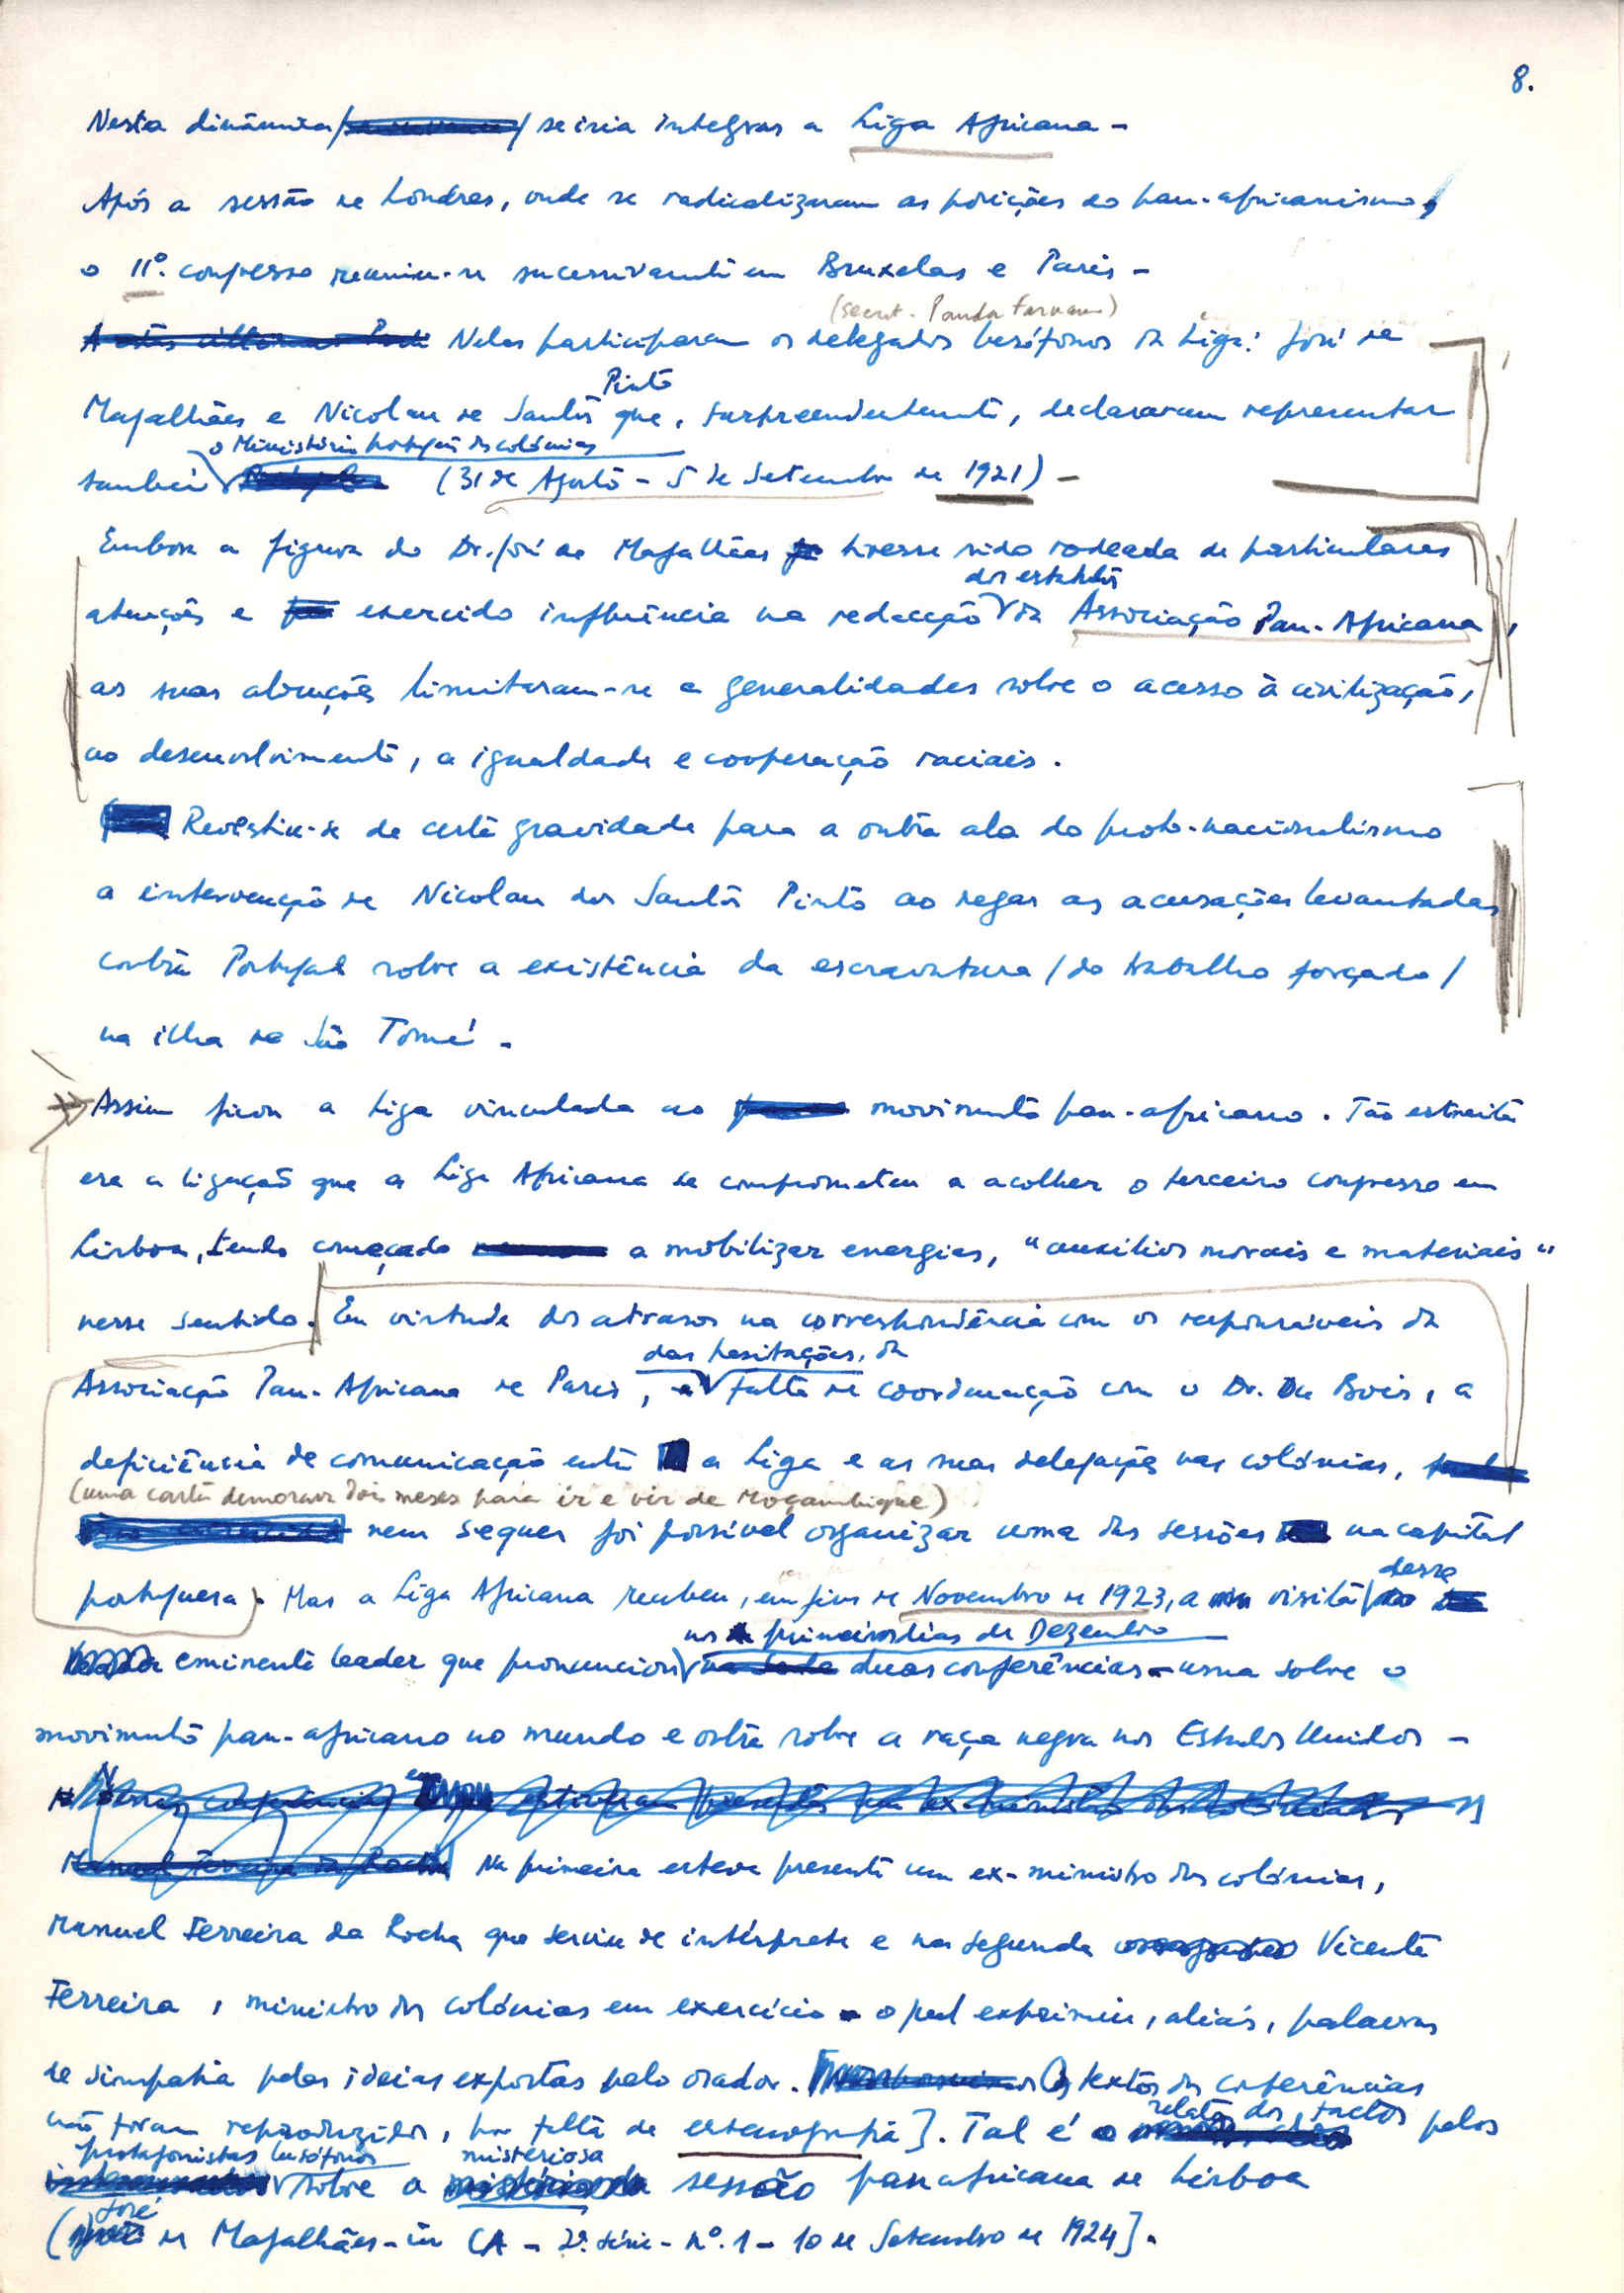 8.
Nesta dinâmica / se iria integrar a Liga Africana -
Após a sessão de Londres, onde se radicalizaram as posições do pan-africanismo,
o IIº. congresso reuniu-se sucessivamente em Bruxelas e Paris -
(secret. Panda Farnana)
Nelas participaram os delegados lusófonos da Liga: José de
Pinto
Magalhães e Nicolau de Santos que, surpreendentemente, declararam representar
o Ministério português das colónias
também (31 de Agosto - 5 de Setembro de 1921) -
Embora a figura do Dr. José de Magalhães tivesse sido rodeada de particulares
dos estatutos
atenções e exercido influência na redacção da Associação Pan-Africana,
as suas alocuções limitaram-se a generalidades sobre o acesso à civilização,
ao desenvolvimento, a igualdade e cooperação raciais.
Revestiu-se de certa gravidade para a outra ala do proto-nacionalismo
a intervenção de Nicolau dos Santos Pinto ao negar as acusações levantadas
contra Portugal sobre a existência da escravatura / do trabalho forçado /
na ilha de São Tomé -
Assim ficou a Liga vinculada ao movimento pan-africano. Tão estreita
era a ligação que a Liga Africana se comprometeu a acolher o terceiro congresso em
Lisboa, tendo começado a mobilizar energias, "auxílios morais e materiais"
nesse sentido. Em virtude dos atrasos na correspondência com os responsáveis da
das hesitações, da
Associação Pan-Africana de Paris, falta de coordenação com o Dr. Du Bois, a
deficiência de comunicação entre a Liga e as suas delegações nas colónias,
(uma carta demorava dois meses para ir e vir de Moçambique)
nem sequer foi possível organizar uma das sessões na capital
desse
portuguesa. Mas a Liga Africana recebeu, em fins de Novembro de 1923, a visita
nos primeiros dias de Dezembro
eminente leader que pronunciou duas conferências - uma sobre o
movimento pan-africano no mundo e outra sobre a raça negra nos Estados Unidos -
Na primeira esteve presente um ex-ministro das colónias,
Manuel Ferreira da Rocha que serviu de intérprete e na segunda Vicente
Ferreira, ministro das colónias em exercício - o qual exprimiu, aliás, palavras
de simpatia pelas ideias expostas pelo orador. [Os textos das conferências
relato dos factos
não foram reproduzidos, por falta de estenografia]. Tal é o pelos
protagonistas lusófonos misteriosa
sobre a sessão panafricana de Lisboa
José
( de Magalhães - in CA - 2ª. série - nº. 1 - 10 de Setembro de 1924].